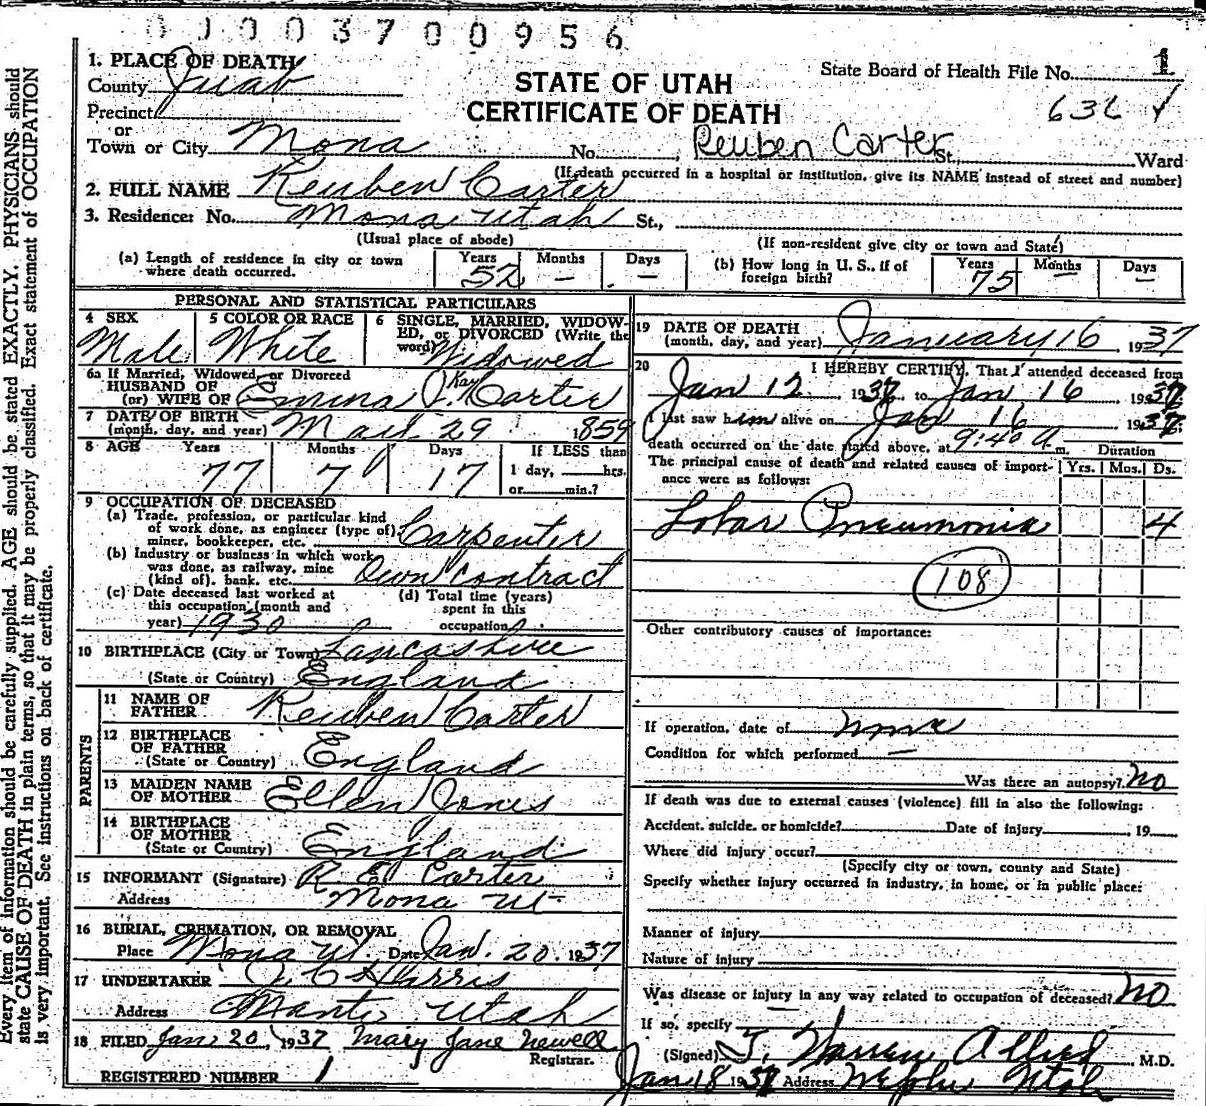 0 0 0 3 7 0 0 9 5 6
1. PLACE OF DEATH
County Juab
Precinct
or
Town or City Mona
STATE OF UTAH
CERTIFICATE OF DEATH
State Board of Health File No. 1
636
No. Reuben Carter St., Ward
(If death occurred in a hospital or institution, give its NAME instead of street and number)
2. FULL NAME Reuben Carter
3. Residence: No. Mona Utah St.,
(Usual place of abode) (If non-resident give city or town and State)
(a) Length of residence in city or town where death occurred. Years 52 Months – Days –
(b) How long in U. S., if of foreign birth? Years 75 Months – Days –
PERSONAL AND STATISTICAL PARTICULARS
4 SEX Male
5 COLOR OR RACE White
6 SINGLE, MARRIED, WIDOWED, or DIVORCED (Write the word) Widowed
6a If Married, Widowed, or Divorced
HUSBAND OF
(or) WIFE OF Emma J. Kay Carter
7 DATE OF BIRTH
(month, day, and year) 29 1859
8 AGE Years 77 Months 7 Days 17 If LESS than 1 day, hrs. or min.?
9 OCCUPATION OF DECEASED
(a) Trade, profession, or particular kind of work done, as engineer (type of) miner, bookkeeper, etc. Carpenter
(b) Industry or business in which work was done, as railway, mine (kind of), bank, etc. Own contract
(c) Date deceased last worked at this occupation (month and year) 1930
(d) Total time (years) spent in this occupation
10 BIRTHPLACE (City or Town) Lancashire
(State or Country) England
PARENTS
11 NAME OF FATHER Reuben Carter
12 BIRTHPLACE OF FATHER (State or Country) England
13 MAIDEN NAME OF MOTHER Ellen Jones
14 BIRTHPLACE OF MOTHER (State or Country) England
15 INFORMANT (Signature) R. E. Carter
Address Mona Ut
16 BURIAL, CREMATION, OR REMOVAL
Place Mona Ut. Date Jan. 20. 1937
17 UNDERTAKER Harris
Address Manti Utah
18 FILED Jan. 20, 1937 Mary Jane Newell
Registrar.
REGISTERED NUMBER 1
19 DATE OF DEATH
(month, day, and year) January 16, 1937
20 I HEREBY CERTIFY, That I attended deceased from
Jan 12 1937, to Jan 16 1937.
I last saw him alive on Jan 16 1937.
death occurred on the date stated above, at 9:40 a m.
The principal cause of death and related causes of importance were as follows:
Duration
Yrs. Mos. Ds.
Lobar Pneumonia 4
108
Other contributory causes of importance:
If operation, date of none
Condition for which performed –
Was there an autopsy? No
If death was due to external causes (violence) fill in also the following:
Accident, suicide, or homicide? Date of injury , 19
Where did injury occur?
(Specify city or town, county and State)
Specify whether injury occurred in industry, in home, or in public place:
Manner of injury
Nature of injury
Was disease or injury in any way related to occupation of deceased? No
If so, specify
(Signed) J. Warren Allred, M.D.
Jan 18 1937 Address Nephi Utah
Every item of information should be carefully supplied. AGE should be stated EXACTLY. PHYSICIANS should
state CAUSE OF DEATH in plain terms, so that it may be properly classified. Exact statement of OCCUPATION
is very important. See instructions on back of certificate.